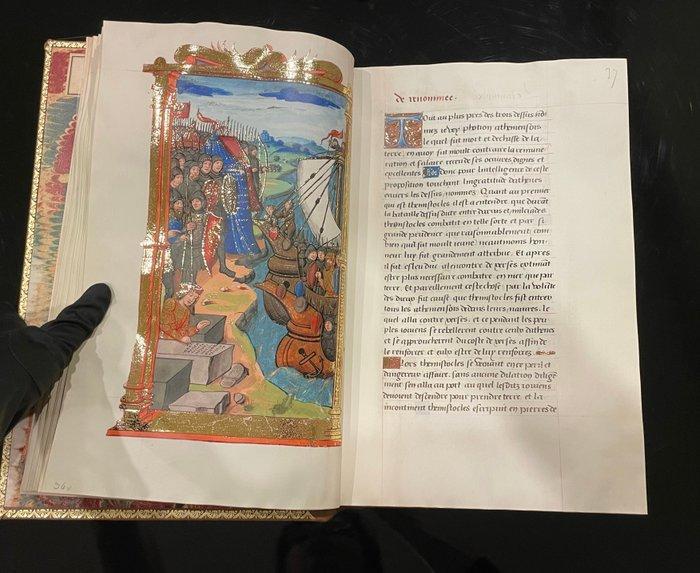 de renommee.
37
Tout au plus pres des trois dessus no
mez le roy photion atheniensois
le quel fut mort et dechasse de la
terre, en quoy fut moult contraire la remune
ration et salaire envers de ses oeuvres dignes et
excellentes donc pour lintelligence de ceste
proposition touchant lingratitude dathenes
envers les dessus nommez. Quant au premier
qui est themistocles, il est a entendre, que durāt
la bataille dessus dicte entre darius et milciades
themistocles combatit en telle sorte et par si
grande prudence, que raisonnablement, com
bien quil fut moult ieune, neantmoins hon
neur luy fut grandement attribue. Et apres
il fut esleu duc alencontre de xerses extimāt
estre plus necessaire combatre en mer que par
terre. Et pareillement ceste chose, par la volūte
des dieux fut cause, que themistocles fist entrer
tous les atheniensois dedans leurs navires, le
quel alla contre xerses, et ce pendant les peu
ples iouiens se rebellerent contre ceulx dathenes
et se approucherent du coste de xerses affin de
le renforcer et eulx estre de luy renforcez.
Lors themistocles se voyant en ce peril et
dangereux affaire, sans aucune dilation diligē
ment sen alla au port au quel lesditz iouiens
devoient descendre pour prendre terre, et la
incontinent themistocles escripuit en pierres de
36v